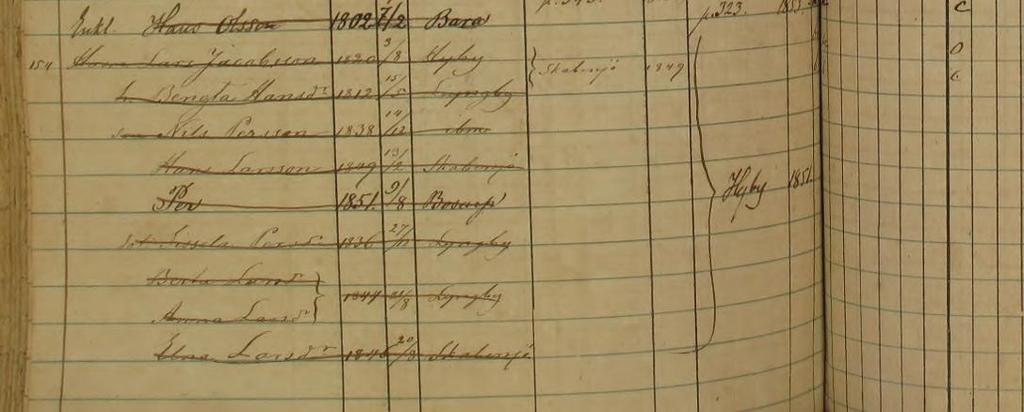 Enkl. Hans Olsson 1802 7/2 Bara p. 323. 1851 C
154 Lars Jacobsson 1820 3/8 Hyby Skabersjö 1849 O
h. Bengta Hansdr 1812 15/5 Lyngby C
son Nils Persson 1838 14/12 ibm
Hans Larsson 1849 13/2 Skabersjö
Per 1851. 9/8 Bosarp Hyby 1851.
dot Sissela Persdr 1836 27/11 Lyngby
Berta Larsdr
1844 31/8 Lyngby
Anna Larsdr
Elna Larsdr 1846 20/8 Skabersjö